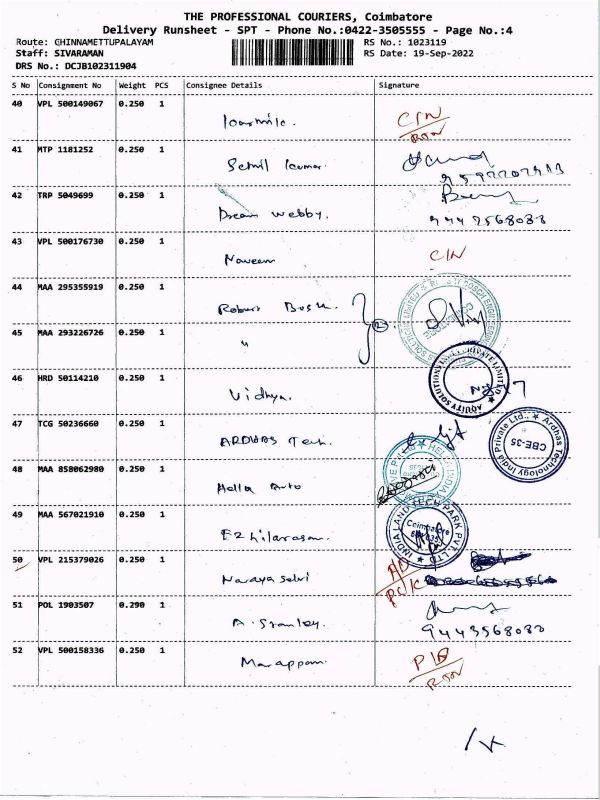 THE PROFESSIONAL COURIERS, Coimbatore
Delivery Runsheet - SPT - Phone No.:0422-3505555 - Page No.:4
Route: CHINNAMETTUPALAYAM RS No.: 1023119
Staff: SIVARAMAN RS Date: 19-Sep-2022
DRS No.: DCJB102311904
S No Consignment No Weight PCS Consignee Details Signature
40 VPL 500149067 0.250 1 CIN
41 MTP 1181252 0.250 1 Senthil Kumar
42 TRP 5049699 0.250 1 Dream Webby. 9442568088
43 VPL 500176730 0.250 1 Naveen CIN
44 MAA 295355919 0.250 1 Robert Bosch.
45 MAA 293226726 0.250 1 "
46 HRD 50114210 0.250 1 Vidhya.
AQUITY SOLUTIONS INDIA PRIVATE LIMITED
47 TCG 50236660 0.250 1 ARDHAS Tech.
Ardhas Technology India Private Ltd.,
CBE-35
48 MAA 858062980 0.250 1 Hella Auto
49 MAA 567021910 0.250 1 Ezhilarasan.
INDIA LAND TECH PARK PVT. LTD
Coimbatore
50 VPL 215379026 0.250 1 Narayaselvi
51 POL 1903507 0.290 1 A. Stanley. 9443568088
52 VPL 500158336 0.250 1 Marappan.